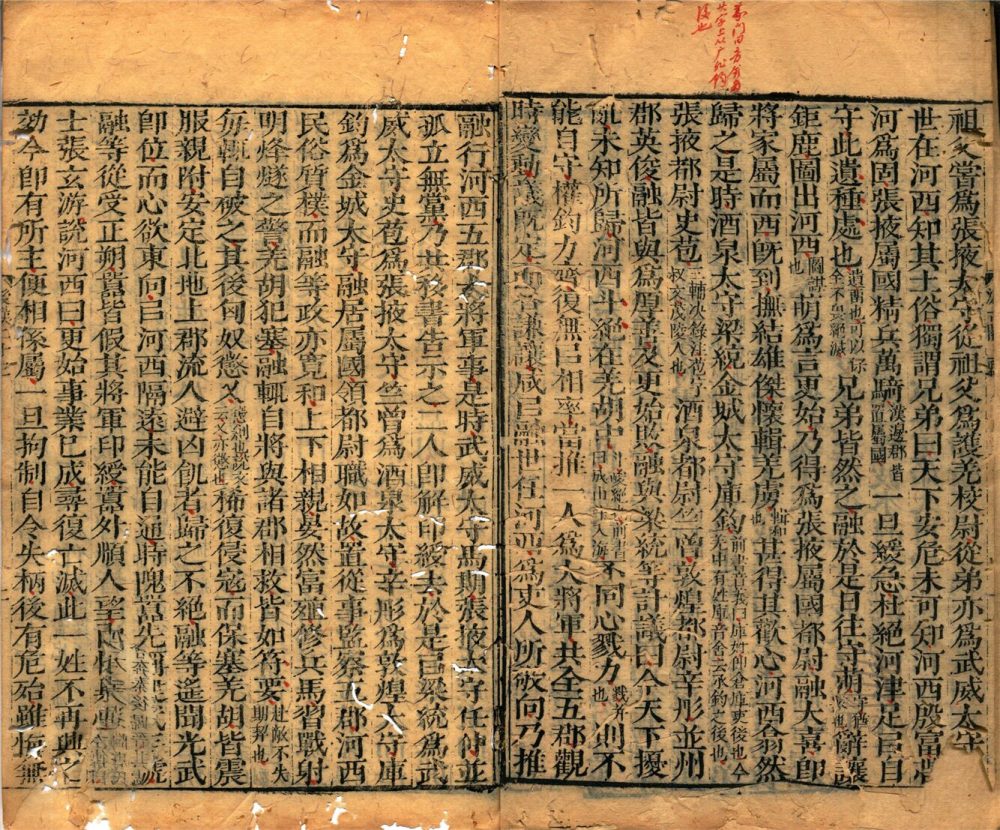 祖父嘗爲張掖太守從祖父爲護羌校尉從弟亦爲武威太守
世在河西知其土俗獨謂兄弟曰天下安危未可知河西殷富帶
河爲固張掖屬國精兵萬騎漢邊郡皆置屬國一旦緩急杜絕河津足㠯自
守此遺種處也遺留也可以保全不畏絕滅兄弟皆然之融於是日往守萌辭讓
鉅鹿圖出河西圖謀也萌爲言更始乃得爲張掖屬國都尉融大喜卽
將家屬而西旣到撫結雄傑懷輯羌虜輯和也甚得其歡心河西翕然
歸之是時酒泉太守梁統金城太守庫鈞前書音義曰庫姓卽倉庫吏後也今羌中有姓庫音舍云承鈞之後也
張掖都尉史苞三輔決錄注苞字叔文茂陵人也酒泉都尉竺曾敦煌都尉辛肜並州
郡英俊融皆與爲厚善及更始敗融與梁統等計議曰今天下擾
亂未知所歸河西斗絕在羌胡中不同心戮力戮并也則不
能自守權鈞力齊復無㠯相率當推一人爲大將軍共全五郡觀
時變動議旣定而各謙讓咸㠯融世任河西爲吏人所敬向乃推
融行河西五郡大將軍事是時武威太守馬期張掖太守任仲並
孤立無黨乃共移書告示之二人卽解印綬去於是㠯梁統爲武
威太守史苞爲張掖太守竺曾爲酒泉太守辛肜爲敦煌太守庫
鈞爲金城太守融居屬國領都尉職如故置從事監察五郡河西
民俗質樸而融等政亦寬和上下相親晏然富殖修兵馬習戰射
明烽燧之警羌胡犯塞融輒自將與諸郡相救皆如符要赴敵不失期契也
每輒自破之其後匈奴懲乂稀復侵寇而保塞羌胡皆震
服親附安定北地上郡流人避凶飢者歸之不絕融等遙聞光武
卽位而心欲東向㠯河西隔遠未能自通時隗囂先稱建武年號
融等從受正朔囂皆假其將軍印綬囂外順人望內懷異心
士張玄游說河西曰更始事業已成尋復亡滅此一姓不再興之
効今卽有所主便相係屬一旦拘制自令失柄後有危殆雖悔無